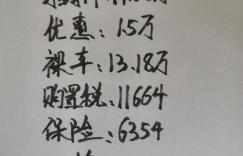 优惠:1.5万
裸车:13.18万
购置税:11664
保险:6354